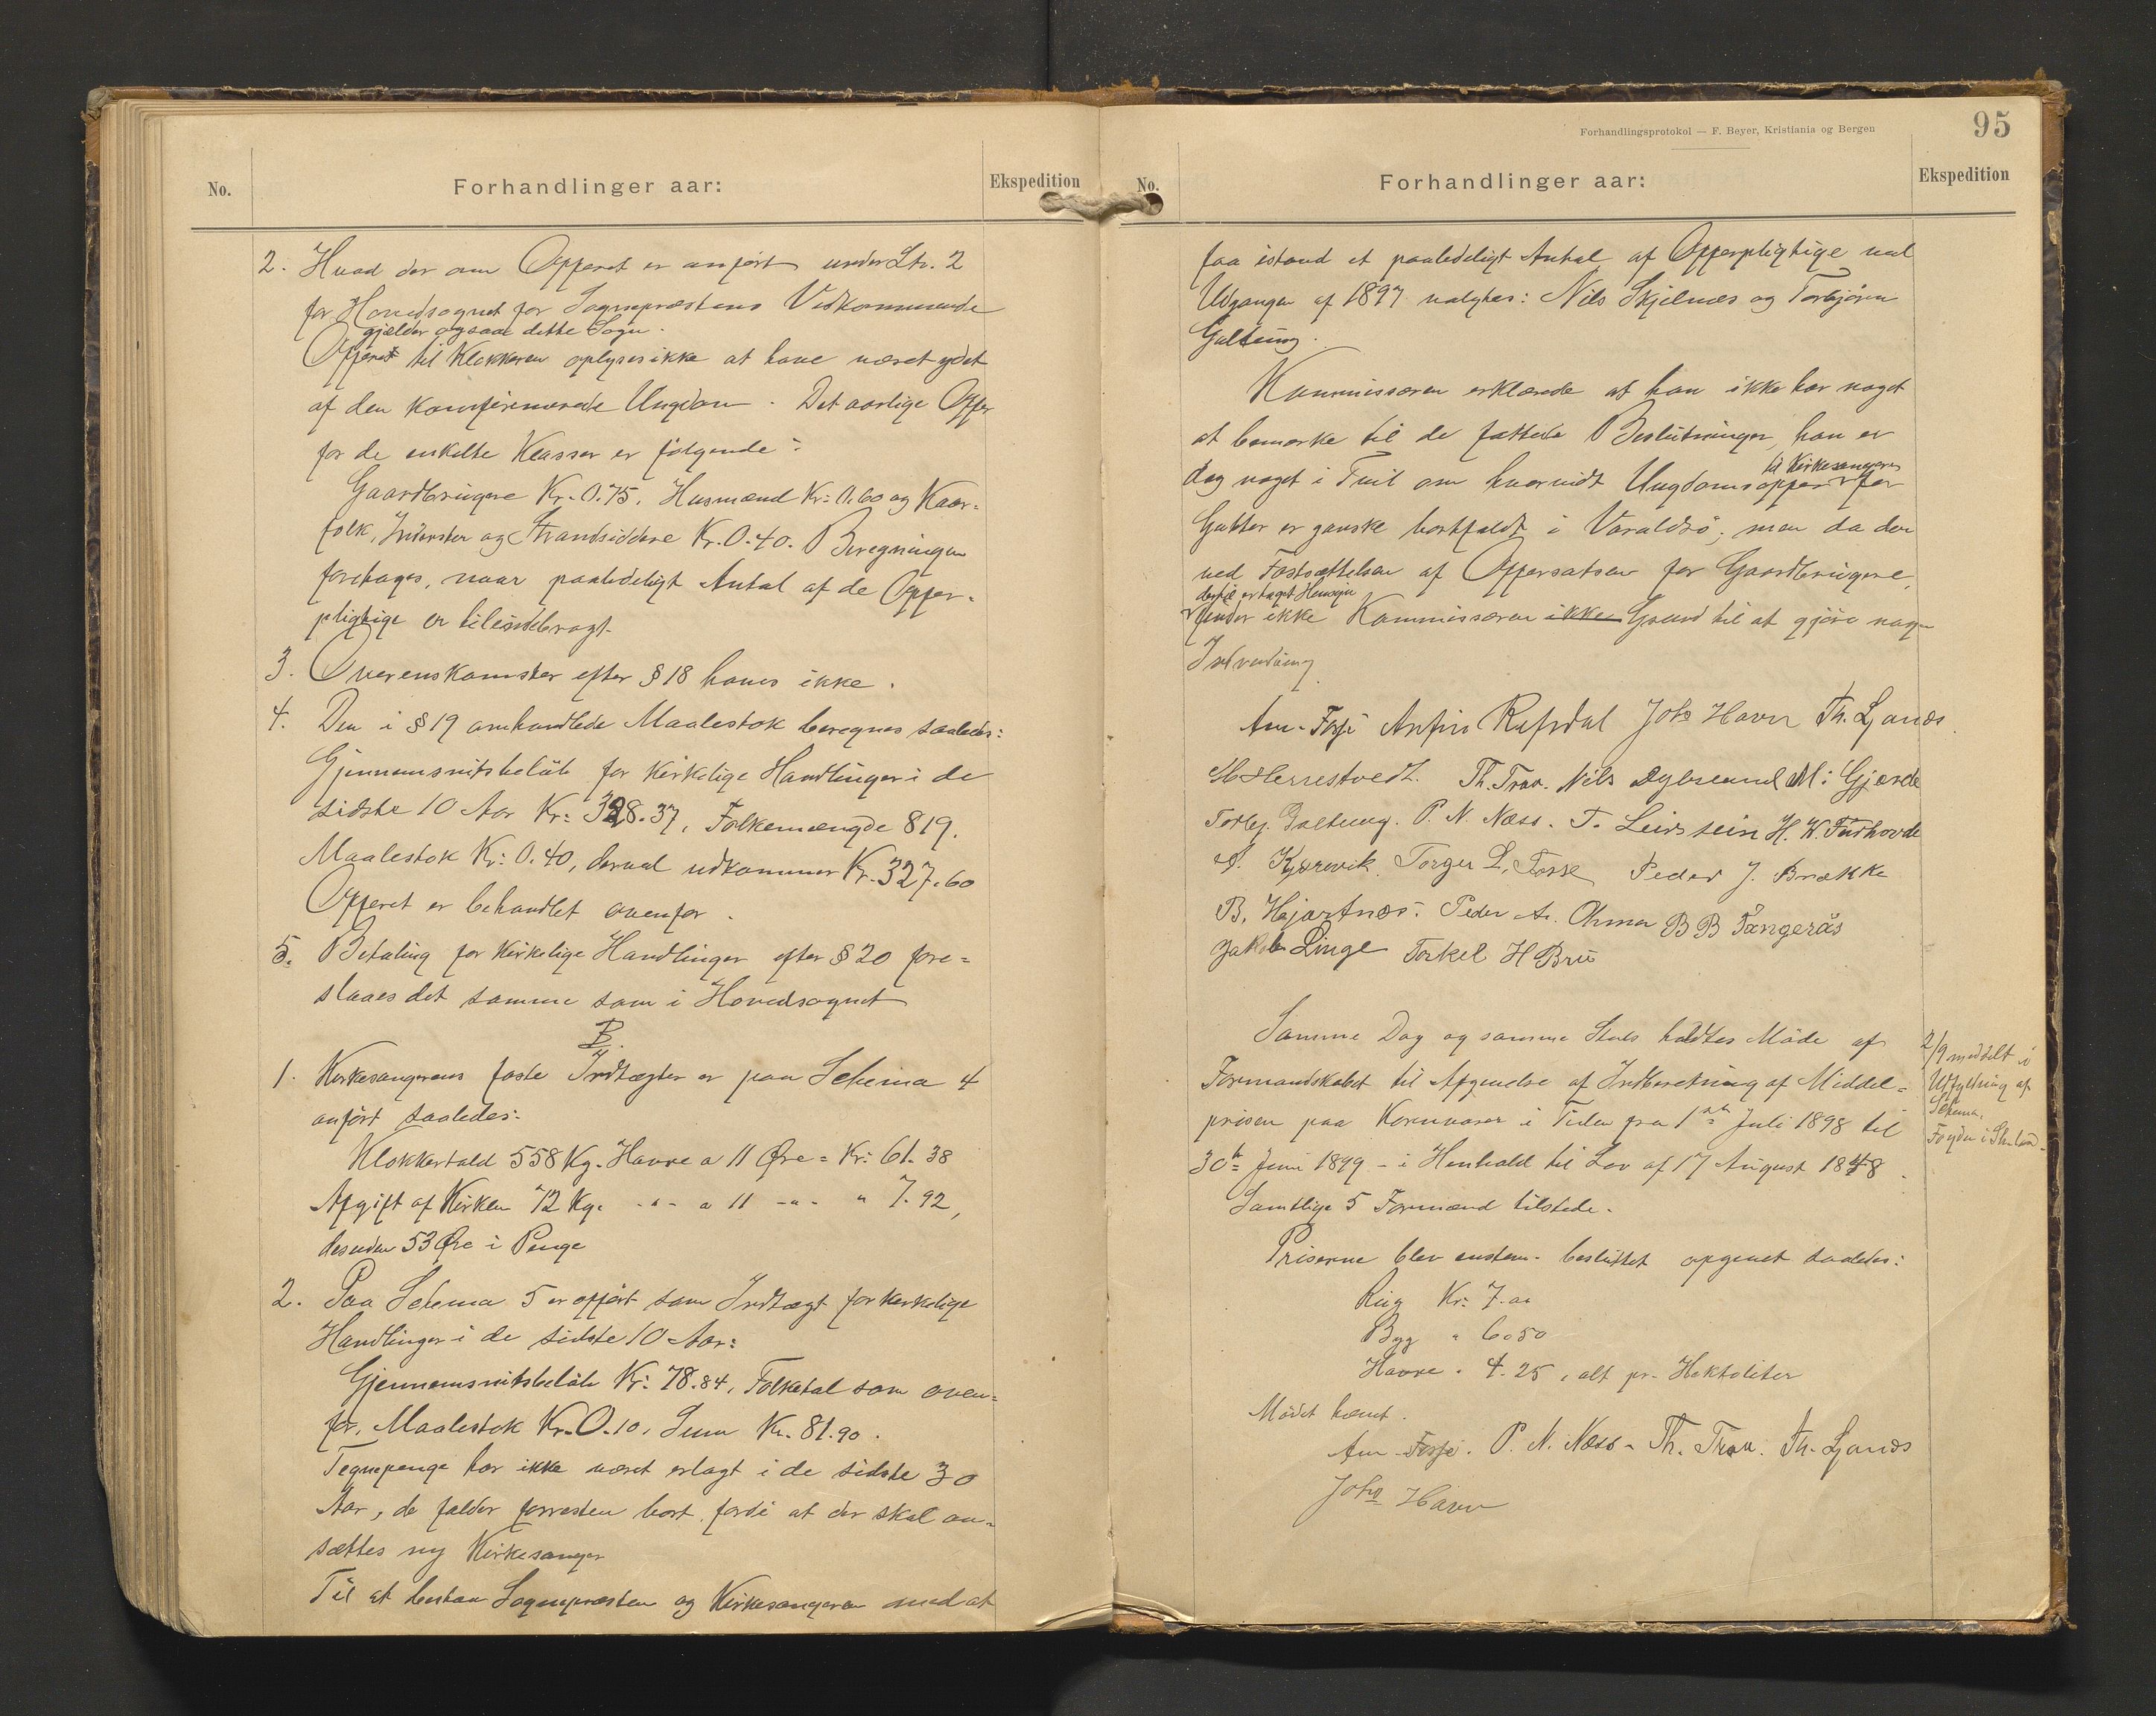 No.
Forhandlinger aar:
Ekspedition
2. Hvad der om Offeret er anført under Ltr. 2
for Hovedsognet for Sognepræstens Vedkommende
gjælder ogsaa dette Sogn.
Offeret til Klokkeren oplyses ikke at have været ydet
af den konfirmerede Ungdom. Det aarlige Offer
for de enkelte Klasser er følgende:
Gaardbrugere Kr. 0.75, Husmænd Kr: 0.60 og Kaar-
folk, Inderster og Strandsiddere Kr. 0.40. Beregningen
foretages, naar paalideligt Antal af de Offer-
pligtige er tilveiebragt.
3. Overenskomster efter § 18 haves ikke.
4. Den i § 19 omhandlede Maalestok beregnes saaledes:
Gjennemsnitsbeløb for kirkelige Handlinger i de
sidste 10 Aar Kr: 328.37, Folkemængde 819.
Maalestok Kr: 0.40, derved udkommer Kr. 327.60
Offeret er behandlet ovenfor.
5. Betaling for kirkelige Handlinger efter § 20 fore-
slaaes det samme som i Hovedsognet
B.
1. Kirkesangerens faste Indtægter er paa Schema 4
anført saaledes:
Klokkertold 558 Kg. Havre a 11 Øre = Kr: 61.38
Afgift af Kirken 72 Kg. -"- a 11 -"- " 7.92,
desuden 53 Øre i Penge
2. Paa Schema 5 er opført som Indtægt for kirkelige
Handlinger i de sidste 10 Aar:
Gjennemsnitsbeløb Kr: 78.84, Folketal som oven-
for, Maalestok Kr. 0.10, Sum Kr. 81.90.
Tegnepenge har ikke været erlagt i de sidste 30
Aar, de falder forresten bort, fordi at der skal an-
sættes ny Kirkesanger
Til at bistaa Sognepræsten og Kirkesangeren med at
Forhandlingsprotokol — F. Beyer, Kristiania og Bergen
95
No.
Forhandlinger aar:
Ekspedition
faa istand et paalideligt Antal af Offerpligtige ved
Udgangen af 1897 valgtes: Nils Skjelnæs og Torbjørn
Galtung.
Kommissæren erklærede at han ikke har noget
at bemærke til de fattede Beslutninger, han er
til Kirkesangeren
dog noget i Tvil om hvorvidt Ungdomsoffer for
Gutter er ganske bortfaldt i Varaldsø; men da der
ved Fastsættelsen af Offersatsen for Gaardbrugere,
dertil er taget Hensyn
finder ikke Kommissæren ikke Grund til at gjøre nogen
Indvending
Am. Fosse Anfin Refsdal Johs Havn Th. Ljanes
Herrestvedt. Th. Traa. Nils Dybsund M: Gjerde
Torbj. Galtung. P. N. Næss. T. Leirstein H. W. Furhovde
Kjærevik. Torger L. Fosse Peder J. Brække
B. Hjartnæs. Peder A. Ohma B B Tangerås
Jakob Linge Torkel H Bru
Samme Dag og samme Sted holdtes Møde af
Formandskabet til Afgivelse af Indberetning af Middel-
prisen paa Kornvarer i Tiden fra 1ste Juli 1898 til
30te Juni 1899 - i Henhold til Lov af 17 August 1848.
Samtlige 5 Formænd tilstede.
Priserne blev enstem. besluttet opgivet saaledes:
Rug Kr: 7.00
Byg " 6.50
Havre " 4.25, alt pr. Hektoliter
Mødet hævet.
Am. Fosse. P. N. Næss. Th. Traa. Th. Ljanes
Johs Havn
2/9 meddelt i
Udfyldning af
Schema.
Fogden i